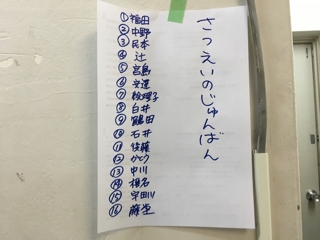 さつえいのじゅんばん
① 福田
② 中野
③ 民本
④ 辻
⑤ 宮島
⑥ 安達
⑦ 枝理子
⑧ 白井
⑨ 鶴田
⑩ 石井
⑪ 佐藤
⑫ かとう
⑬ 中川
⑭ 椎名
⑮ 宇田川
⑯